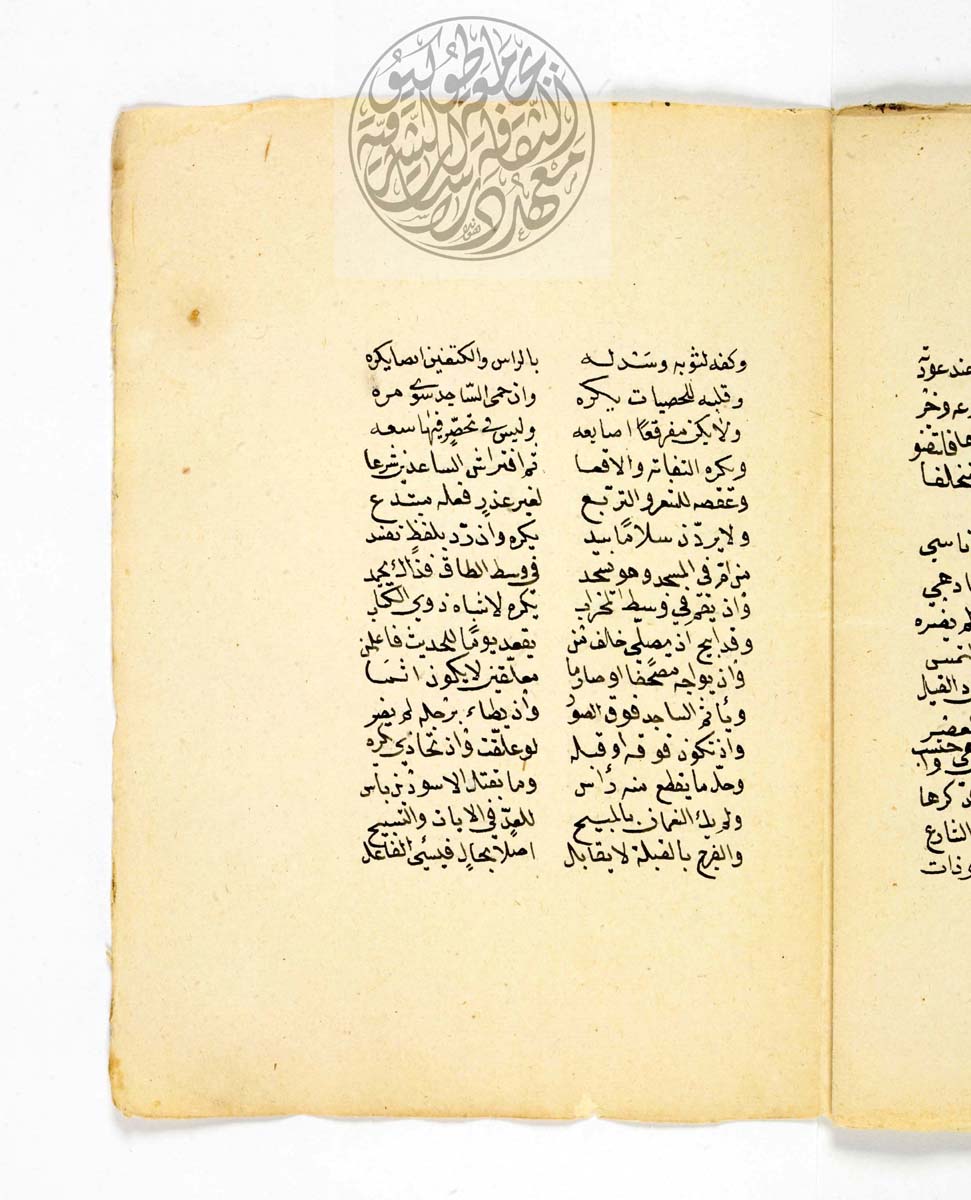 وكفه لثوبه وسدله بالراس والكتفين ايضا يكره
وقلبه للحصيات يكره وان حمى الساجد سوى مره
ولا يكن مفرقعًا اصابعه وليس في تخصّر فيها سعه
ويكره التفاته والاقعا ثم افتراش الساعدين شرعا
وعقصه للشعر والتربع لغير عذرٍ فعله مبتدع
ولا يردّن سلامًا بيد يكره وان ردّ بلفظٍ تفسد
من امّ في المسجد وهو يسجد في وسط الطاق فذاك يحمد
وان يقم في وسط المحراب يكره لاشباه ذوي الكتاب
وقد ابيح ان يصلي خلف من يقعد يومًا للحديث فاعلمن
وان يواجه مصحفا او صارما معلقين لا يكون اثمًا
ويأثم الساجد فوق الصور وان يطاء برجله لم يضر
وان تكون فوقه او قبله لو علّقت وان تحاذي كره
وحلّ ما يقطع منه رأس وما بقتل الاسودين باس
ولم يك النعمان بالمبيح للعدّ في الايات والتسبيح
والفرج بالقبلة لا يقابل اصلًا بحالٍ فيسئ الفاعل
عند عودة
فاتقنو
ناسي
لم يضره
الشمس
القبل
ذات